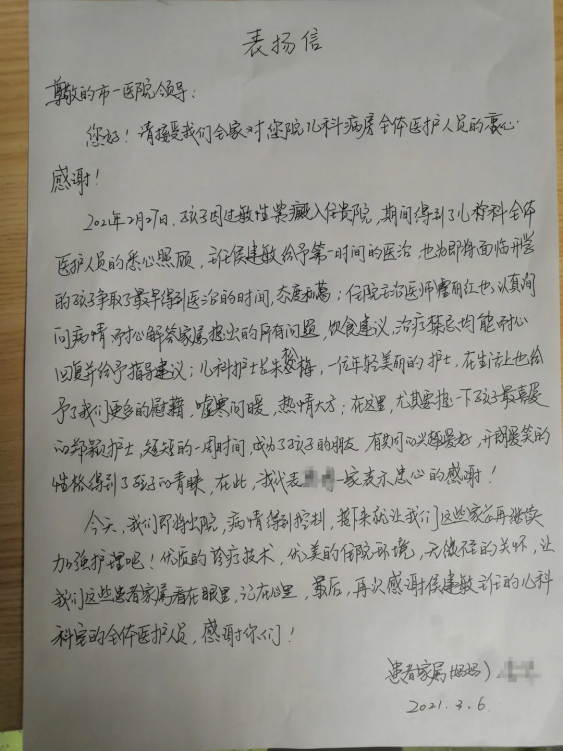 表扬信
尊敬的市一医院领导：
您好！请接受我们全家对您院儿科病房全体医护人员的衷心
感谢！
2021年2月27日，孩子因过敏性紫癜入住贵院，期间得到了儿科全体
医护人员的悉心照顾，主任侯建敏给予第一时间的医治，也为即将面临开学
的孩子争取了最早得到医治的时间，态度和蔼；住院主治医师丽红也认真询
问病情，耐心解答家属提出的所有问题，饮食建议，治疗禁忌均能耐心
回复并给予指导建议；儿科护士长朱梅，一位年轻美丽的护士，在生活上也给
予了我们更多的慰藉，嘘寒问暖，热情大方；在这里，尤其要提一下孩子最喜爱
的郑颖护士，短短的一周时间，成为了孩子的朋友，有共同的兴趣爱好，开朗爱笑的
性格得到了孩子的青睐，在此，我代表一家表示忠心的感谢！
今天，我们即将出院，病情得到控制，接下来就让我们这些家长再继续
加强护理吧！优质的诊疗技术，优美的住院环境，无微不至的关怀，让
我们这些患者家属看在眼里，记在心里，最后，再次感谢侯建敏主任的儿科
科室的全体医护人员，感谢你们！
患者家属（妈妈）
2021.3.6.